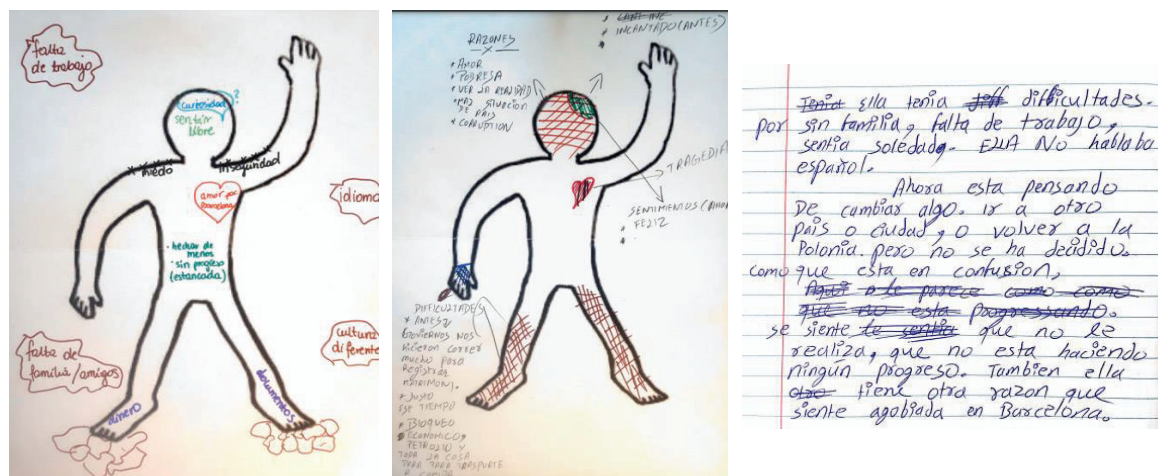 falta
de trabajo
curiosidad?
sentir
libre
miedo
inseguridad
amor por
Barcelona
idioma
• hechar de
menos
• sin progreso
(estancada)
cultura
diferente
falta de
familia/amigos
dinero
documentos
INCANTADO (ANTES)
RAZONES
* AMOR
* POBRESA
* VER LA REALIDAD
SITUACION
DE PAIS
* CORRUPTION
TRAGEDIA
SENTIMIENTOS (AHOR
FELIZ
DIFICULTADES
* ANTES
GOVIERNOS NOS
hicieron CORRER
mucho para
Registrar
MATRIMON.
* JUSTO
ESE TIEMPO
* BLOQUEO
* ECONOMICO,
PETROLIO Y
TODA LA COSA
PARA TRASPORTE
Tenia Ella tenia diff difficultades.
por sin familia, falta de trabajo,
sentia soledad. ELLA No hablaba
español.
Ahora esta pensando
De cambiar algo. Ir a otro
país o ciudad, o volver a la
Polonia. pero no se ha decidido.
como que esta en confusion,
Aqui a le parece como como
que no esta progressando.
se siente le sentia que no le
realiza, que no esta haciendo
ningún progreso. Tambien ella
otro tiene otra razon que
siente agobiada en Barcelona.